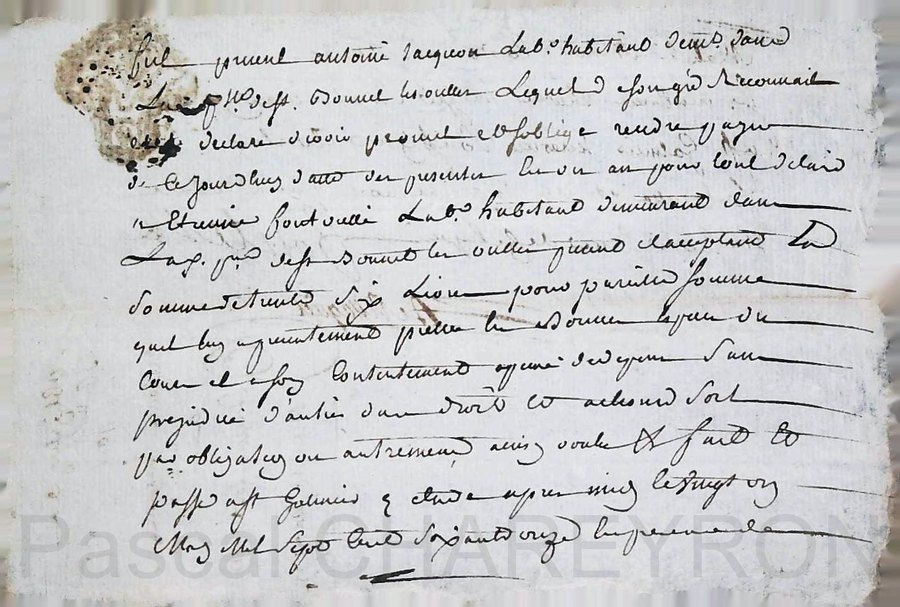 fut present antoine Jacquon Lab.r habitant dem.t dans
La p.sse de st. Bonnet les oulles Lequel de son gré Reconnait
declare devoir promet et s'oblige rendre payer
de ce jourdhuy datte des presentes en un an pour tout delaid
a Etienne fontvielle Lab.r habitant demeurant dans
La p. p.sse de st Bonnet les oulles present et acceptant La
Somme de trente Six Livres pour pareille somme
quil luy a presentement prettée en Bonnes especes du
Cours et a son Contentement sans
prejudice d'autres droits et actions Soit
par obligation ou autrement ainsy voulu & fait et
passé a st Galmier etude apres midy le vingt un
May Mil Sept Cent Soixante onze En presence de
Pascal CHAREYRON